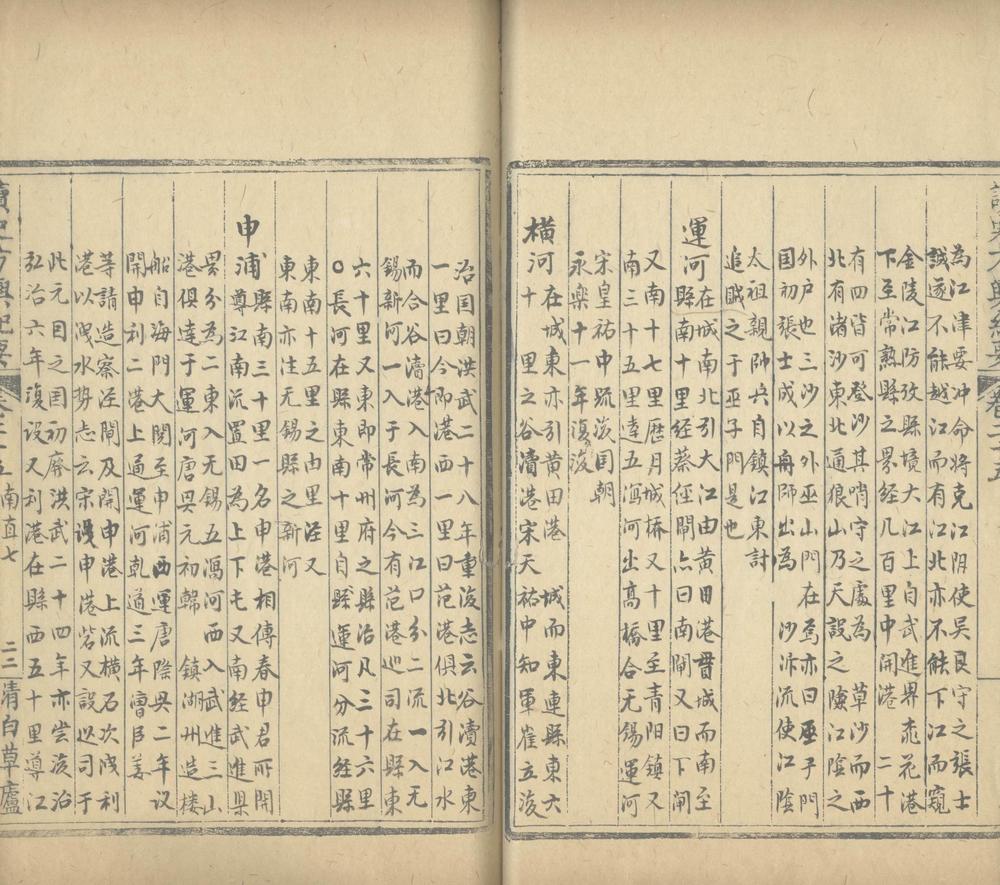 為江津要冲命将克江阴使吴良守之張士
誠遂不能越江而有江北亦不能下江而窺
金陵江防攷縣境大江上自武進界桃花港
下至常熟縣之界经几百里中開港二十
有四皆可登沙其哨守之處為草沙而西
北有渚沙東北通狼山乃天設之險江陰之
外户也三沙之外巫山門在焉亦曰巫子門
国初張士成以舟師出為沙泝流使江陰
太祖親帥兵自鎮江東討
追賊之于巫子門是也
運河在城南北引大江由黄田港晋城而南至
縣南十里经蔡俓閘亦曰南閘又曰下閘
又南十七里歷月城橋又十里至青阳鎮又
南三十五里達五瀉河出高橋合无锡運河
宋皇祐中疏浚国朝
永樂十一年復浚
横河在城東亦引黄田港城而東連縣東六
十里之谷瀆港宋天祐中知軍崔立浚
治国朝洪武二十八年重浚志云谷瀆港東
一里曰令即港西一里曰范港俱北引江水
而合谷瀆港入南為三江口分二流一入无
锡新河一入于長河今有范港巡司在縣東
六十里又東即常州府之縣治凡三十六里
○長河在縣東南十里自縣運河分流经縣
東南十五里之由里泾又
東南亦注无锡縣之新河
申浦縣南三十里一名申港相傳春申君所開
導江南流置田為上下屯又南经武進界
界分為二東入无锡五瀉河西入武進三山
港俱達于運河唐興元初韩鎮湖州造楼
船自海門大閱至申浦西運唐隆興二年议
開申利二港上通運河乾道三年漕臣姜
等請造寨泾閘及開申港上流横石次浚利
港以洩水势志云宋議申港砦又設巡司于
此元因之国初廢洪武二十四年亦尝浚治
弘治六年復設又利港在縣西五十里導江
讀史方輿纪要 卷二十五 南直七 二二 清白草廬